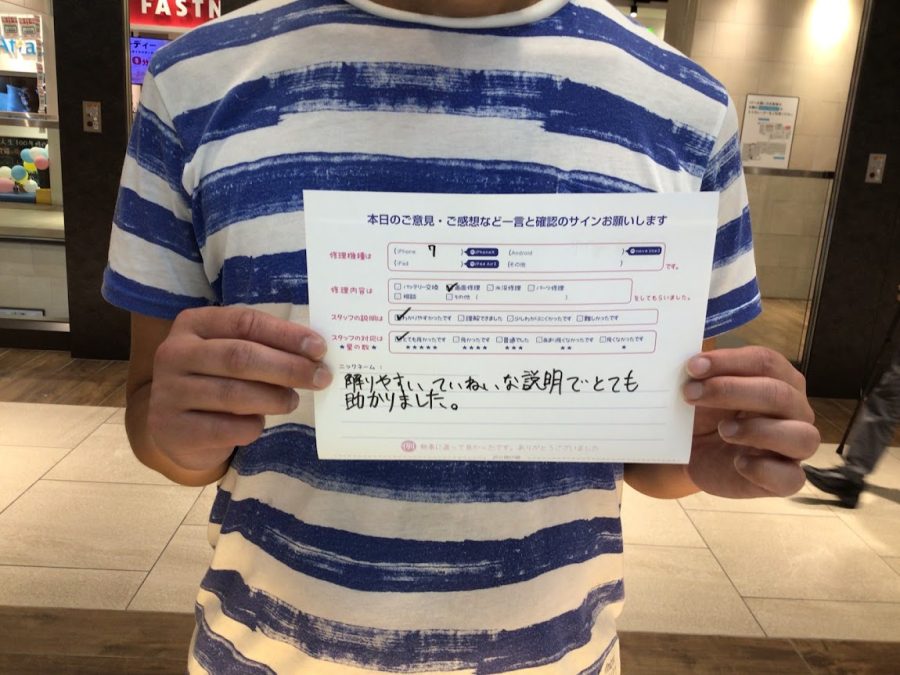 FASTN
本日のご意見・ご感想など一言と確認のサインお願いします
修理機種は
(iPhone 7 ) iPhoneX (Android )
(iPad ) iPad Air (その他 ) です。
修理内容は
バッテリー交換 画面修理 水没修理 パーツ修理
相談 その他 ( ) をしてもらいました。
スタッフの説明は わかりやすかったです 理解できました 少しわかりにくかったです 難しかったです
スタッフの対応は とても良かったです 良かったです 普通でした あまり良くなかったです 良くなかったです
★星の数★ ★★★★★ ★★★★ ★★★ ★★ ★
ニックネーム:
解りやすい、ていねいな説明でとても
助かりました。